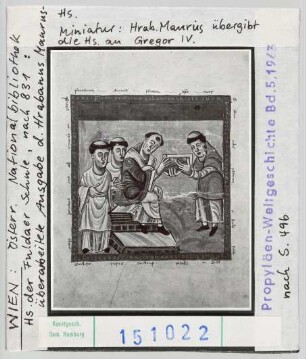 Hs.
Miniatur: Hrab. Maurus übergibt
die Hs. an Gregor IV.
WIEN: Österr. Nationalbibliothek
Hs. der Fuldaer Schule, nach 831:
überarbeit. Ausgabe d. Hrabanus Maurus
Propyläen-Weltgeschichte Bd.5,
nach S. 496
Kunstgesch.
Sem. Hamburg
151022